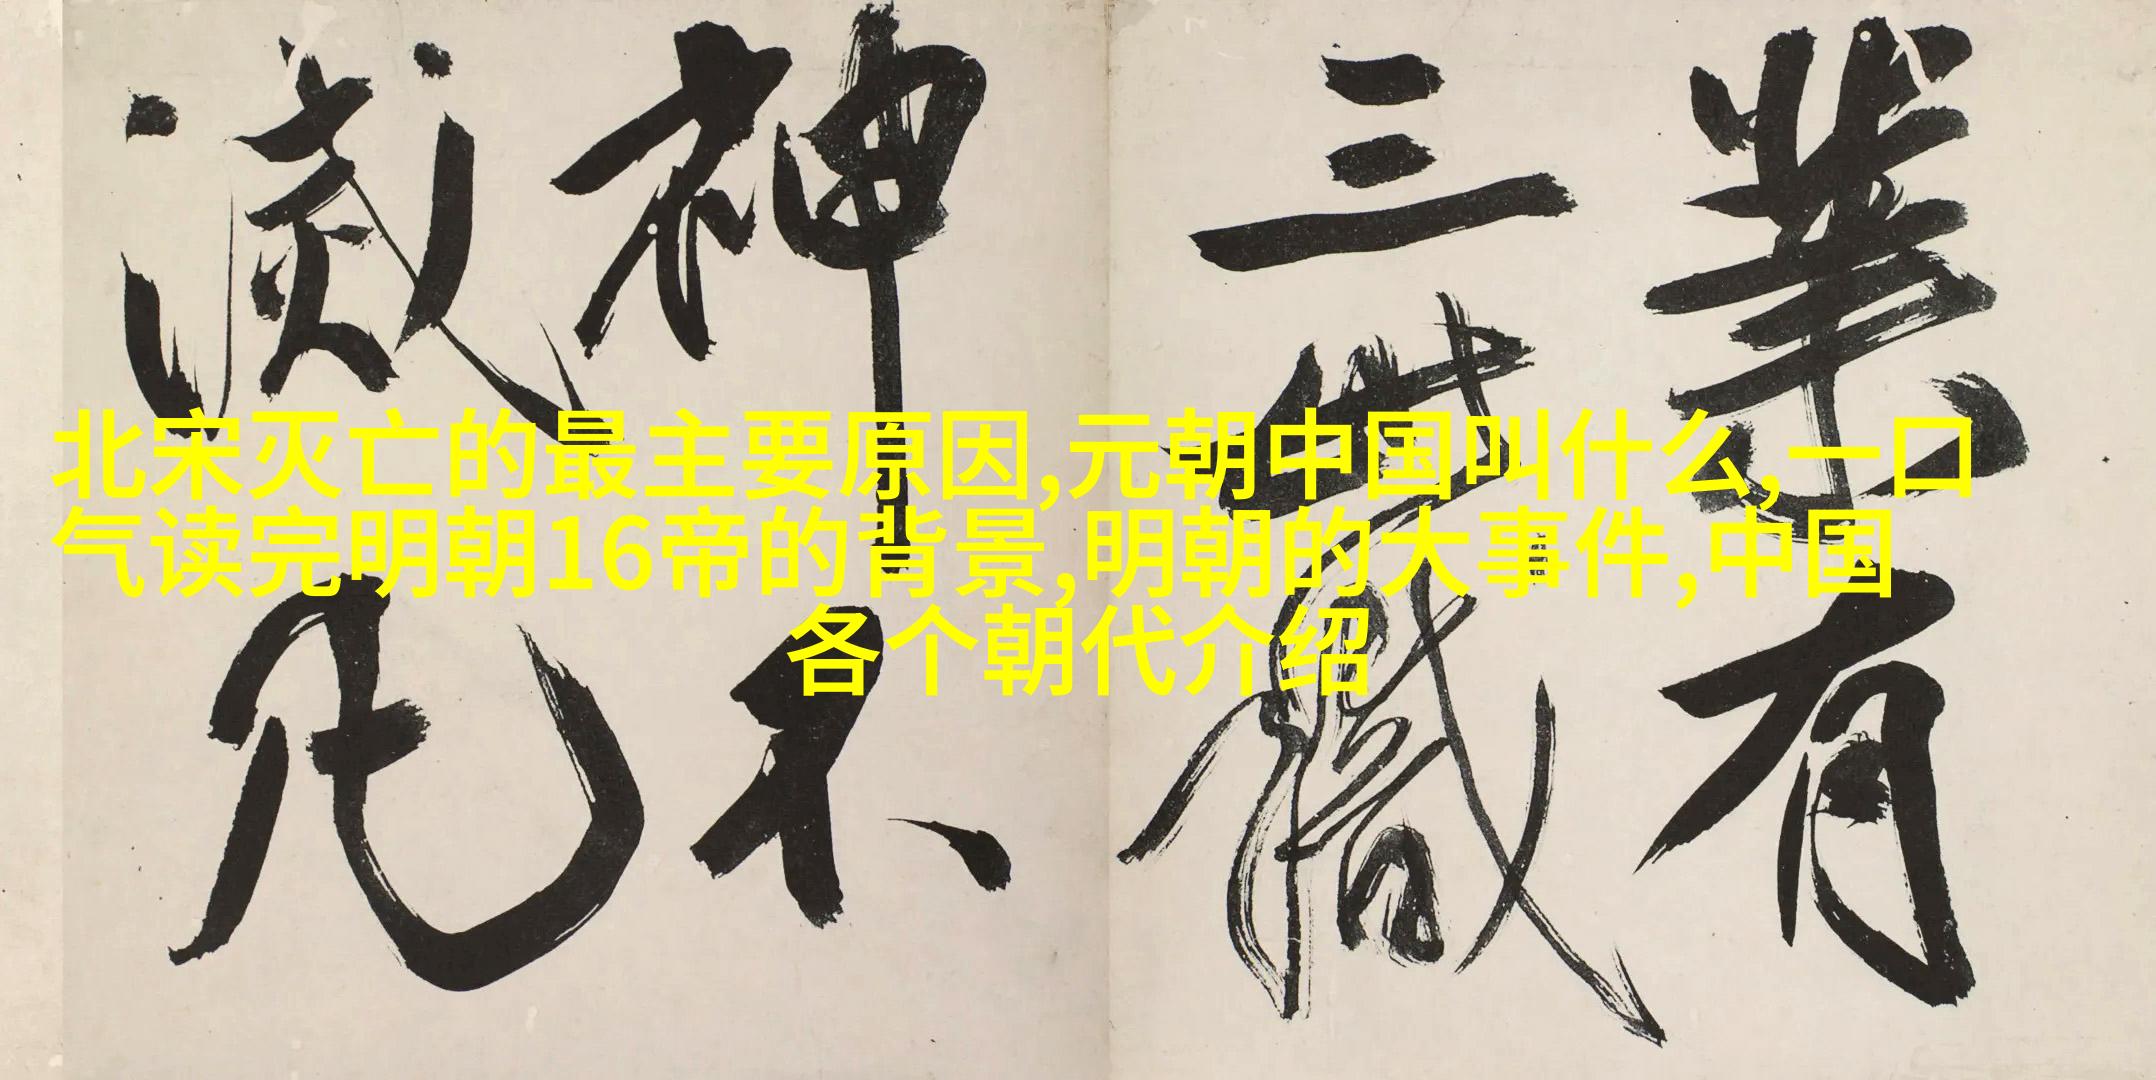 業有
三世職
神不
滅凡
北宋灭亡的最主要原因,元朝中国叫什么,一口
气读完明朝16帝的背景,明朝的大事件,中国
各个朝代介绍